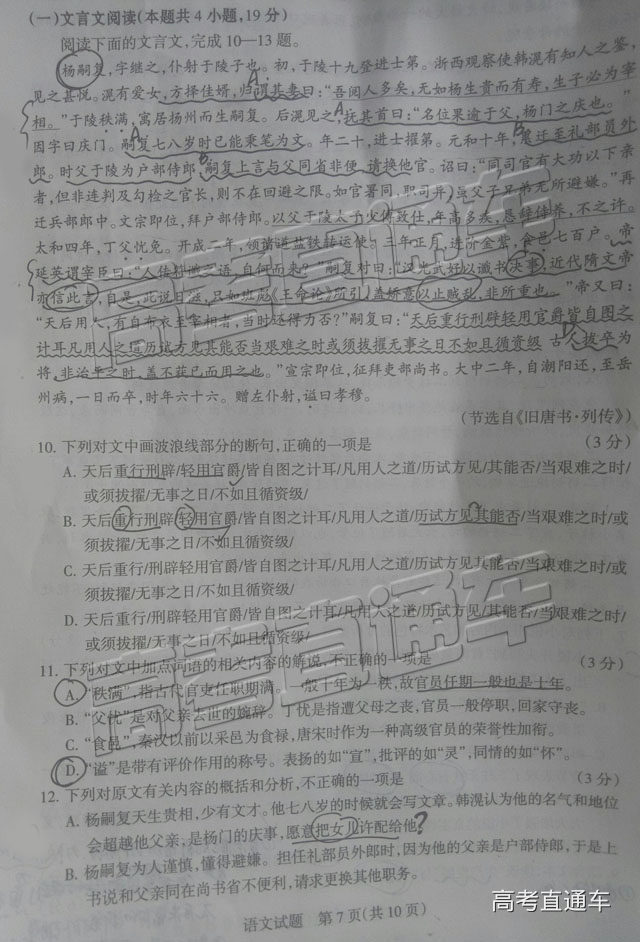 (一)文言文阅读(本题共4小题,19分)
阅读下面的文言文,完成10—13题。
杨嗣复,字继之,仆射于陵子也。初,于陵十九登进士第。浙西观察使韩滉有知人之鉴,
见之甚悦。滉有爱女,方择佳婿,归谓其妻曰:“吾阅人多矣,无如杨生贵而有寿,生子必为宰
相。”于陵秩满,寓居扬州而生嗣复。后滉见之,抚其首曰:“名位果逾于父,杨门之庆也。”
因字曰庆门。嗣复七八岁时已能秉笔为文。年二十,进士擢第。元和十年,累迁至礼部员外
郎。时父于陵为户部侍郎,嗣复上言与父同省非便,请换他官。诏曰:“同司官有大功以下亲
者,但非连判及勾检之官长,则不在回避之限。如官署同,职司异,虽父子兄弟无所避嫌。”再
迁兵部郎中。文宗即位,拜户部侍郎。以父于陵太子少傅致仕,年高多疾,恳辞侍养,不之许。
太和四年,丁父忧免。开成二年,领诸道盐铁转运使。三年正月,进阶金紫,食邑七百户。帝
延英谓宰臣曰:“人传谶词之语,自何而来?”嗣复对曰:“汉光武好以谶书决事,近代隋文帝
亦信此言,自是,此说日滋,只如班彪《王命论》所引,盖矫意以止贼乱,非所重也。”帝又曰:
“天后用人,有自布衣至宰相者,当时还得力否?”嗣复曰:“天后重行刑辟轻用官爵皆自图之
计耳凡用人之道历试方见其能否当艰难之时或须拔擢无事之日不如且循资级 古人拔卒为
将,非治平之时,盖不获已而用之也。”宣宗即位,征拜吏部尚书。大中二年,自潮阳还,至岳
州病,一日而卒,时年六十六。赠左仆射,谥曰孝穆。
(节选自《旧唐书·列传》)
10. 下列对文中画波浪线部分的断句,正确的一项是 (3分)
A. 天后重行刑辟/轻用官爵/皆自图之计耳/凡用人之道/历试方见/其能否/当艰难之时/
或须拔擢/无事之日/不如且循资级/
B. 天后重行刑辟/轻用官爵/皆自图之计耳/凡用人之道/历试方见其能否/当艰难之时/或
须拔擢/无事之日/不如且循资级/
C. 天后重行/刑辟轻用官爵/皆自图之计耳/凡用人之道/历试方见其能否/当艰难之时/或
须拔擢/无事之日/不如且循资级/
D. 天后重行/刑辟轻用官爵/皆自图之计耳/凡用人之道/历试方见/其能否/当艰难之时/
或须拔擢/无事之日/不如且循资级/
11. 下列对文中加点词语的相关内容的解说,不正确的一项是 (3分)
A. “秩满”,指古代官吏任职期满。一般十年为一秩,故官员任期一般也是十年。
B. “父忧”是对父亲去世的婉辞。丁忧是指遭父母之丧,官员一般停职,回家守丧。
C. “食邑”,秦汉以前以采邑为食禄,唐宋时作为一种高级官员的荣誉性加衔。
D. “谥”是带有评价作用的称号。表扬的如“宣”,批评的如“灵”,同情的如“怀”。
12. 下列对原文有关内容的概括和分析,不正确的一项是 (3分)
A. 杨嗣复天生贵相,少有文才。他七八岁的时候就会写文章。韩滉认为他的名气和地位
会超越他父亲,是杨门的庆事,愿意把女儿许配给他。?
B. 杨嗣复为人谨慎,懂得避嫌。担任礼部员外郎时,因为他的父亲是户部侍郎,于是上
书说和父亲同在尚书省不便利,请求更换其他职务。
语文试题 第7页(共10页)
高考直通车